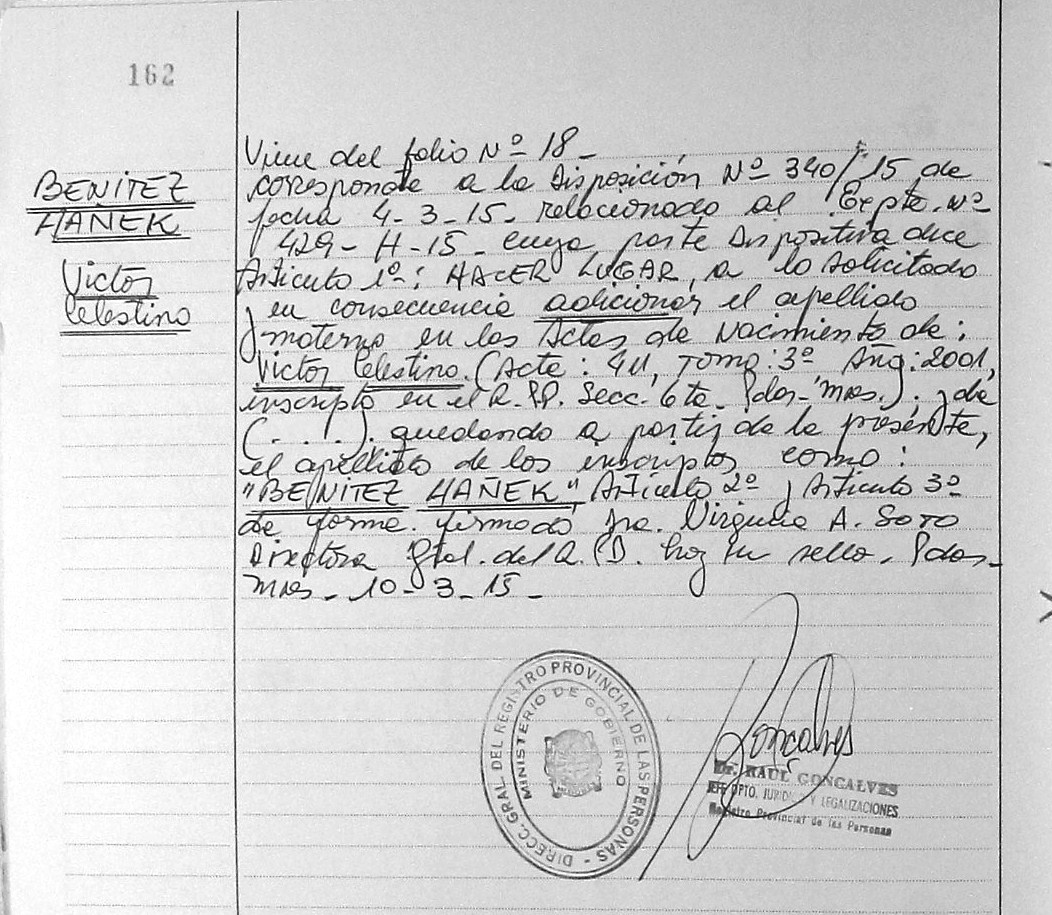 162
BENITEZ
HAÑEK
Victor
Celestino
Viene del folio Nº 18 -
corresponde a la Disposición Nº 340/15 de
fecha 4-3-15- relacionado al Expte. Nº
429-H-15- cuya parte Dispositiva dice
Artículo 1º: HACER LUGAR, a lo solicitado
y en consecuencia adicionar el apellido
materno en las Actas de Nacimiento de:
Victor Celestino. (Acta: 411, Tomo: 3º Año: 2001,
inscripto en el R.PP. Secc. 6ta. Pdas-Mnes.). y de
(. . . .). quedando a partir de la presente,
el apellido de los inscriptos como:
"BENITEZ HAÑEK", Artículo 2º y Artículo 3º
de forma. firmado Dra. Virginia A. SOTO
Directora Gral. del R. P. hay un sello. Pdas-
Mnes - 10-3-15-
DIRECC. GRAL DEL REGISTRO PROVINCIAL DE LAS PERSONAS -
MINISTERIO DE GOBIERNO
Gonçalves
Dr. RAUL GONCALVES
JEFE DPTO. JURIDICO Y LEGALIZACIONES
Registro Provincial de las Personas